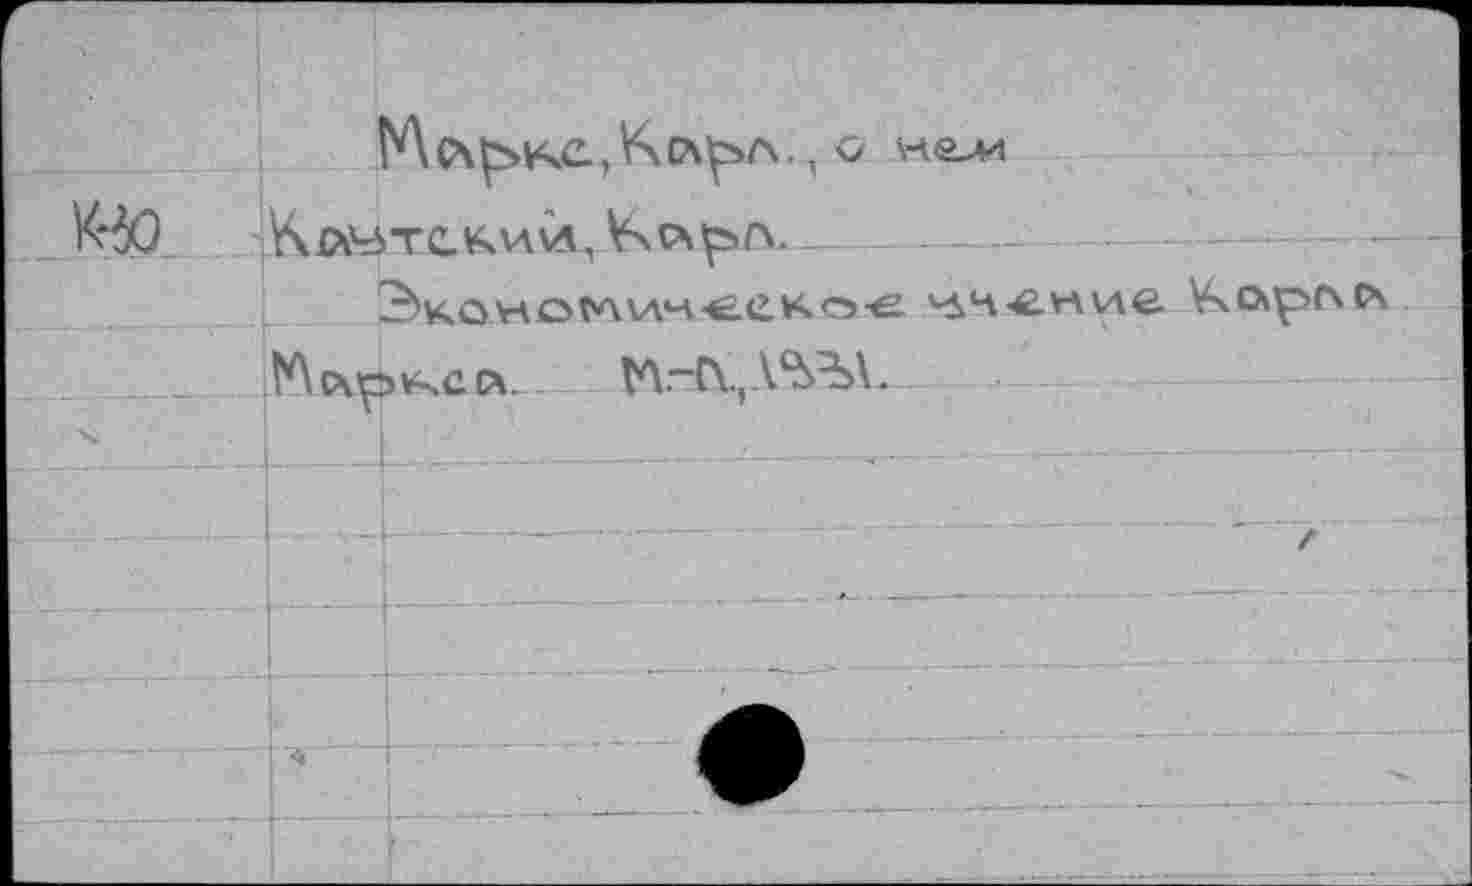 Маркс, Карл., о нем
К-30 Каутский, Карл.
Экономическое учение Карла
Маркса. М.-Л., 1931.